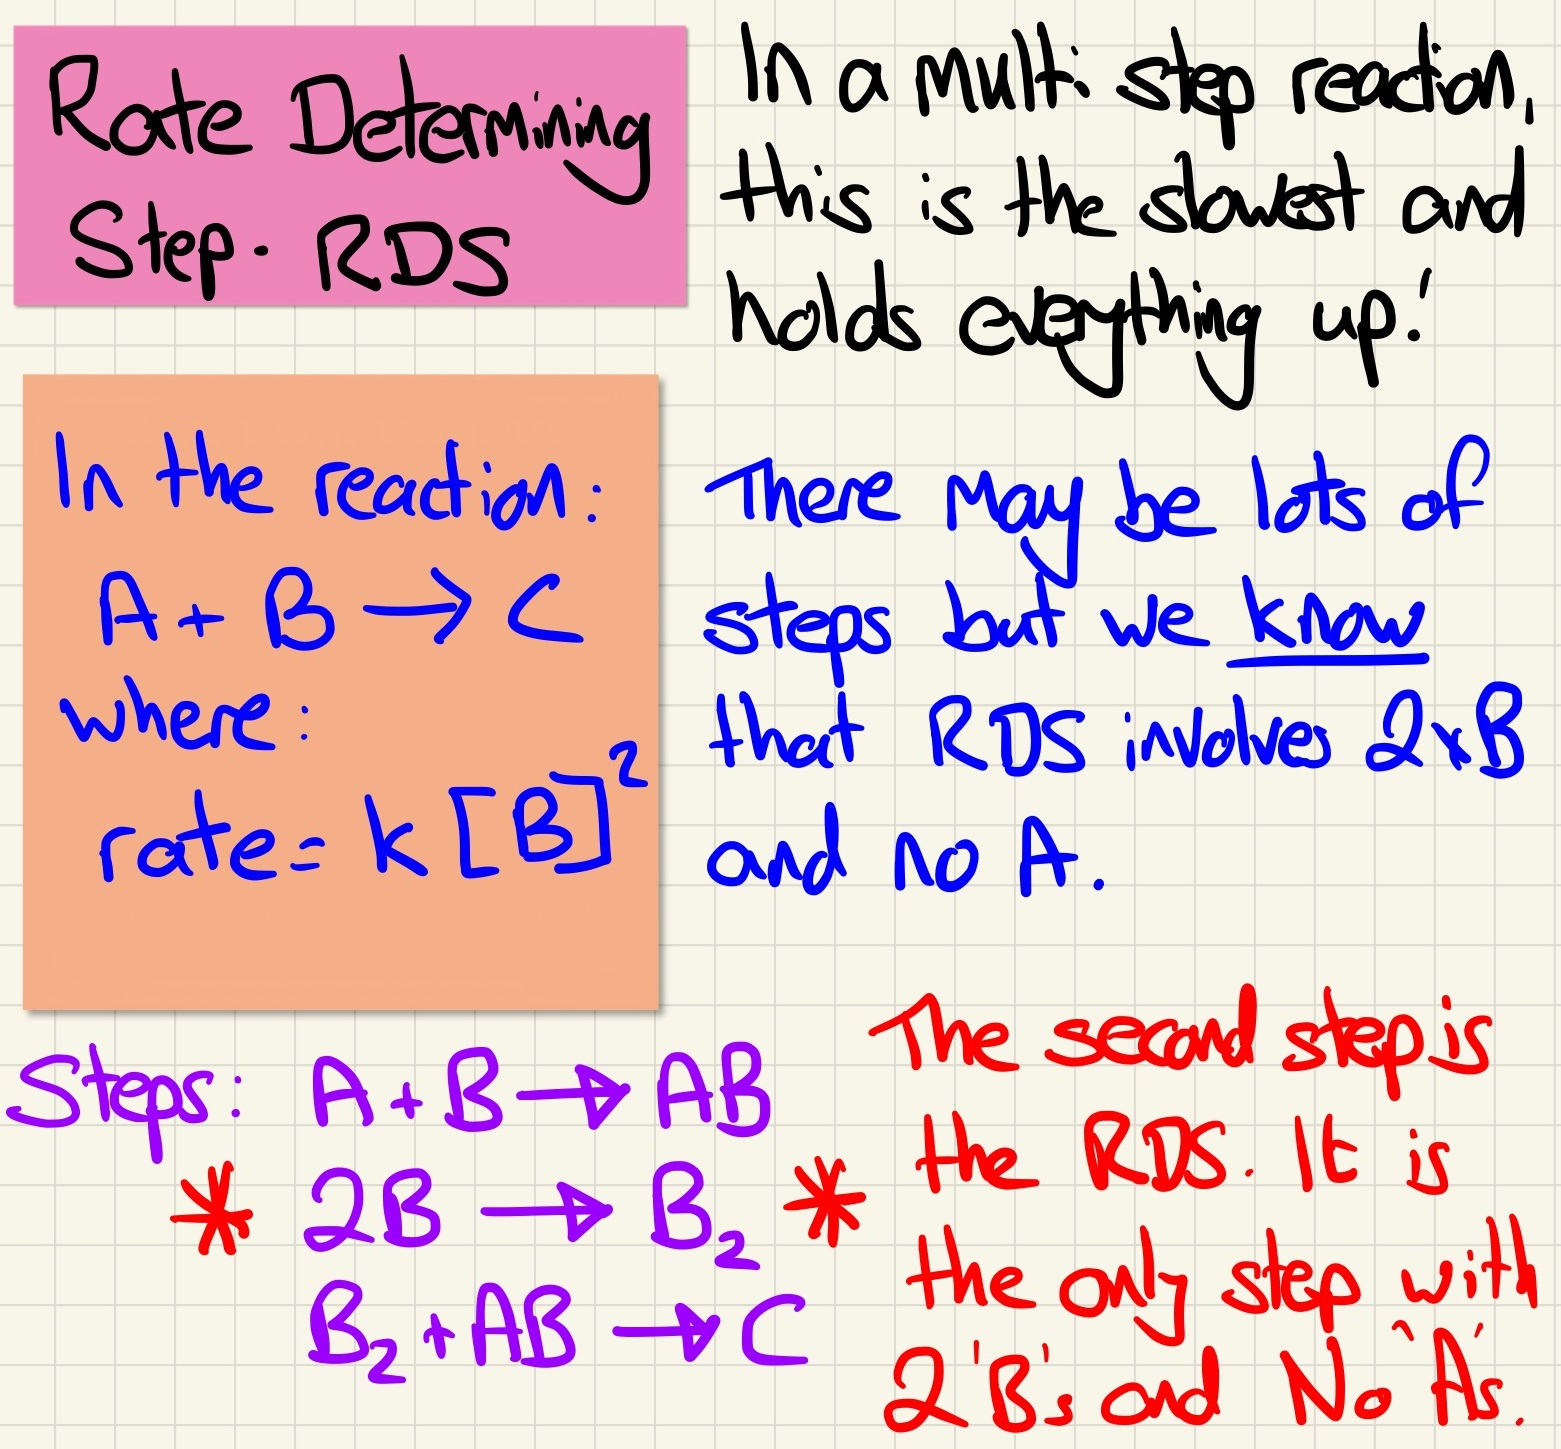 Rate Determining
Step. RDS
In a multi step reaction,
this is the slowest and
holds everything up!
In the reaction:
A + B → C
where:
rate = k [B]²
There may be lots of
steps but we know
that RDS involves 2xB
and no A.
Steps: A + B → AB
* 2B → B₂ *
B₂ + AB → C
The second step is
the RDS. It is
the only step with
2 'B's and No 'A's.